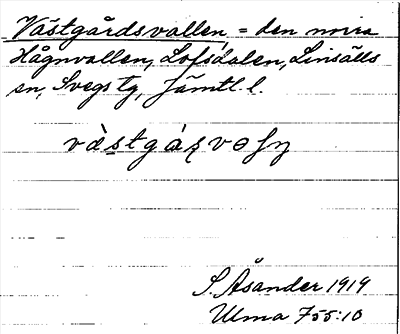 Västgårdsvallen, = den norra
Hågnvallen, Lofsdalen, Linsälls
sn, Svegs tg, Jämtl. l.
västgáʂvɘļņ
S. Åsander 1919
Ulma 755:10